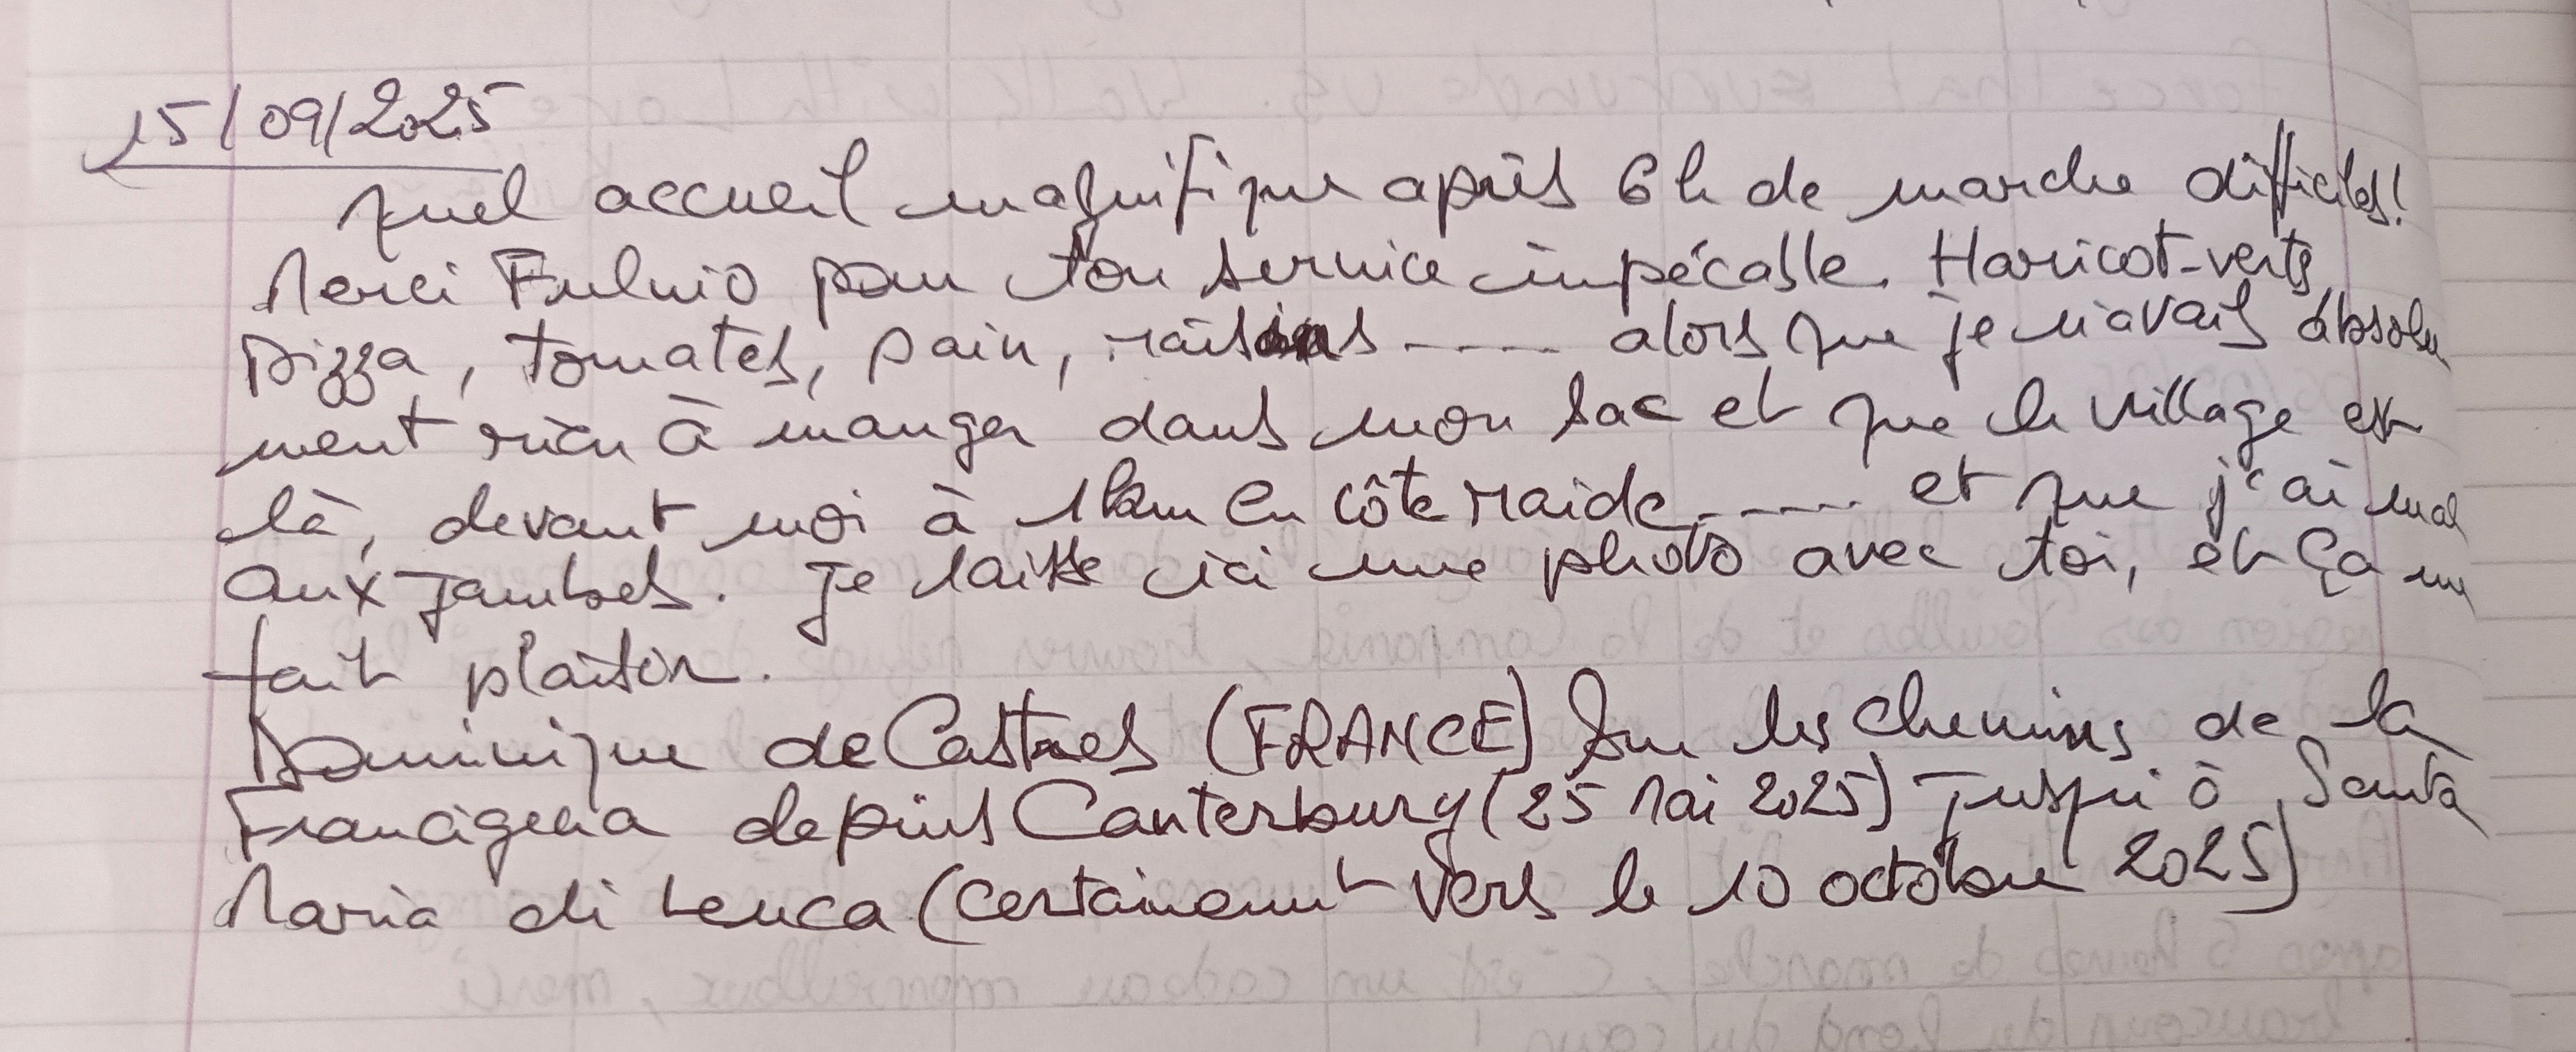 15/09/2025
quel accueil magnifique après 6h de marche difficiles!
Merci Fulvio pour ton service impécable. Haricot-verts,
pizza, tomates, pain, raisins ---- alors que je n'avais absolu
ment rien à manger dans mon sac et que le village est
là, devant moi à 1km en côte raide ----- et que j'ai mal
aux jambes. Je laisse ici une photo avec toi, et ça me
fait plaisir.
Dominique de Castres (FRANCE) sur les chemins de la
Francigena depuis Canterbury (25 Mai 2025) jusqu'à Santa
Maria di Leuca (certainement vers le 10 octobre 2025)